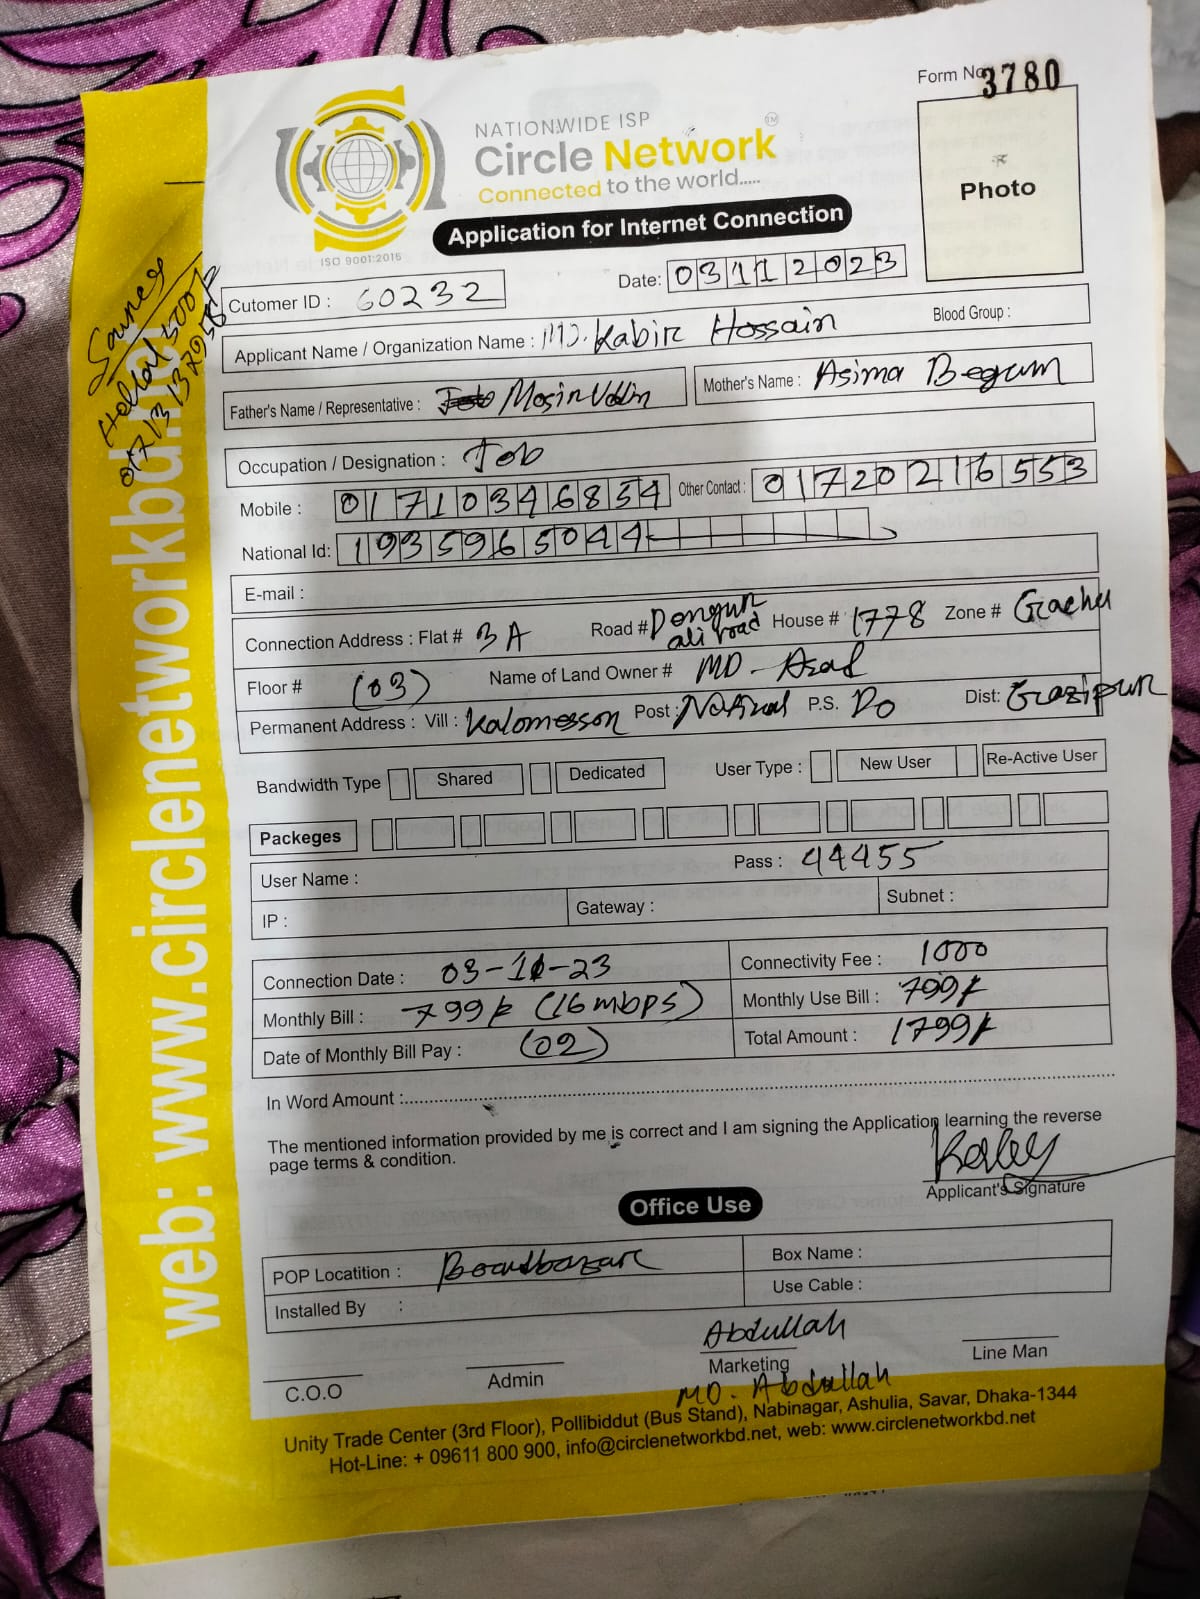 Form No. 3780
NATIONWIDE ISP
Circle Network TM
Connected to the world.....
ISO 9001:2015
Application for Internet Connection
Photo
Date: 03112023
Cutomer ID : 60232
Applicant Name / Organization Name : MD. Kabir Hossain Blood Group :
Father's Name / Representative : Mosin Uddin Mother's Name : Asima Begum
Occupation / Designation : Job
Mobile : 01710346854 Other Contact : 01720216553
National Id: 1935965044
E-mail :
Connection Address : Flat # 3A Road # ali road House # 1778 Zone #
Floor # (03) Name of Land Owner # MD - Azad
Permanent Address : Vill : Kalomesson Post : P.S. Do Dist: Gazipur
Bandwidth Type Shared Dedicated User Type : New User Re-Active User
Packeges
User Name : Pass : 44455
IP : Gateway : Subnet :
Connection Date : 03-11-23 Connectivity Fee : 1000
Monthly Bill : 799/- (16 mbps) Monthly Use Bill : 799/-
Date of Monthly Bill Pay : (02) Total Amount : 1799/-
In Word Amount :
The mentioned information provided by me is correct and I am signing the Application learning the reverse
page terms & condition.
Applicant's Signature
Office Use
POP Locatition : Boardbazar Box Name :
Installed By : Use Cable :
Abdullah
C.O.O Admin Marketing Line Man
MD. Abdullah
Unity Trade Center (3rd Floor), Pollibiddut (Bus Stand), Nabinagar, Ashulia, Savar, Dhaka-1344
Hot-Line: + 09611 800 900, info@circlenetworkbd.net, web: www.circlenetworkbd.net
web: www.circlenetworkbd.net